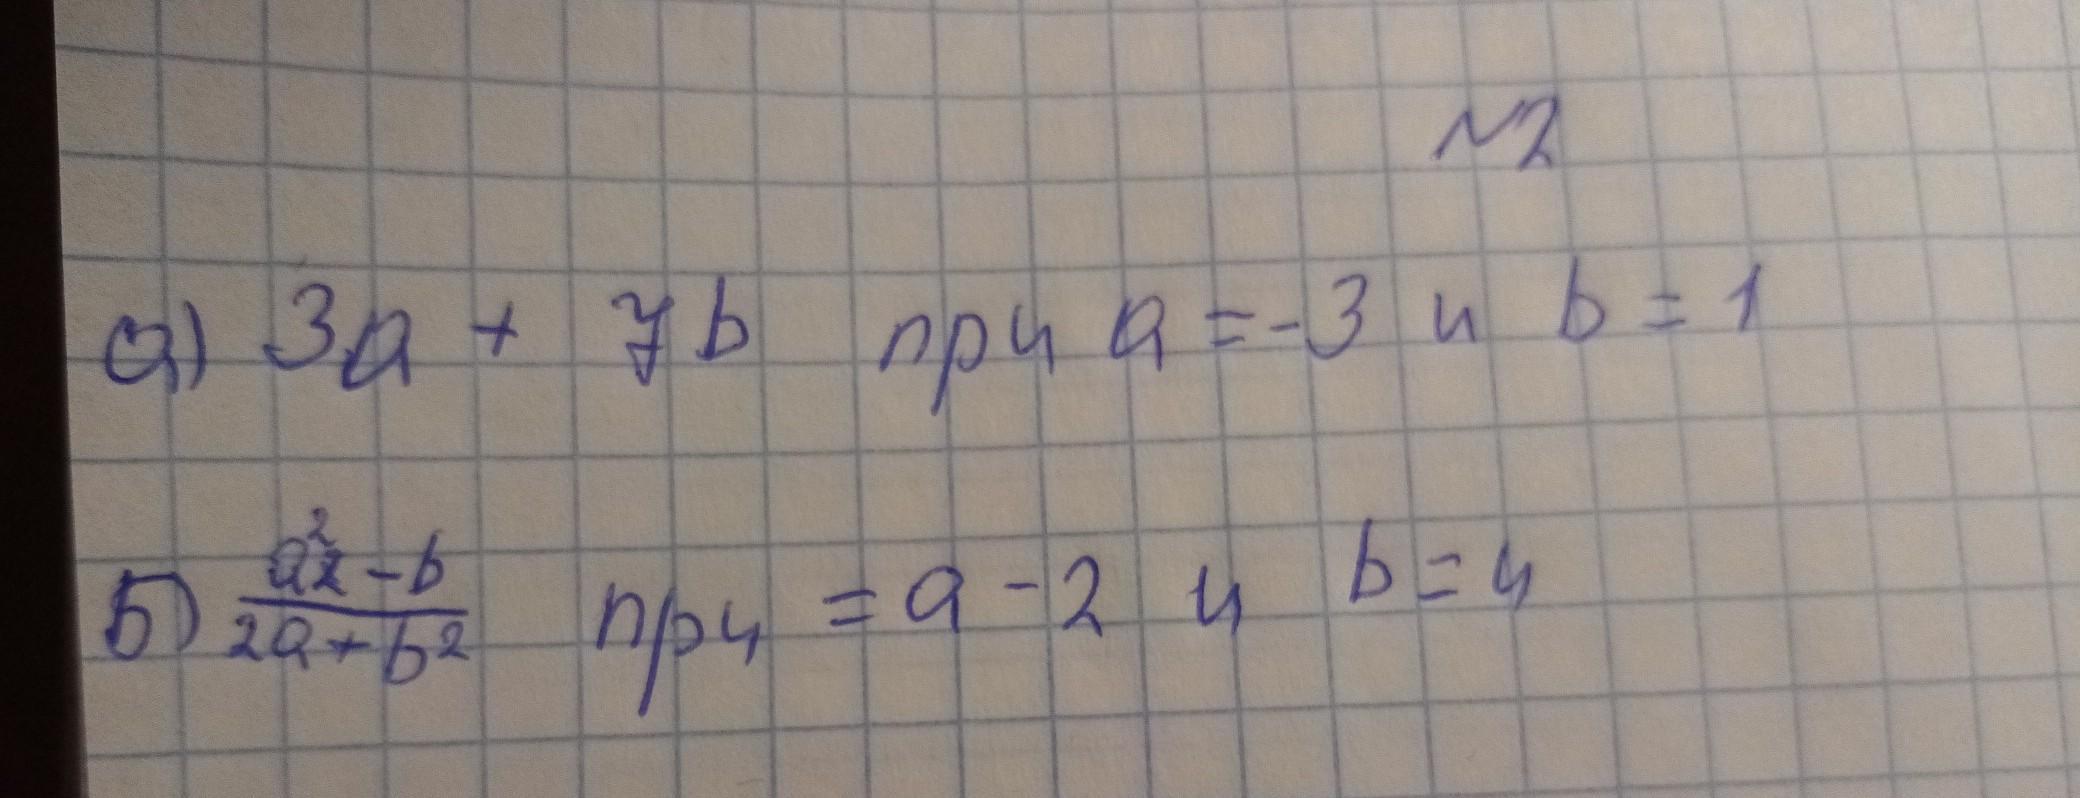 №2
а) 3a + 7b при a = -3 и b = 1
Б) a²-b / 2a+b² при = a - 2 и b = 4